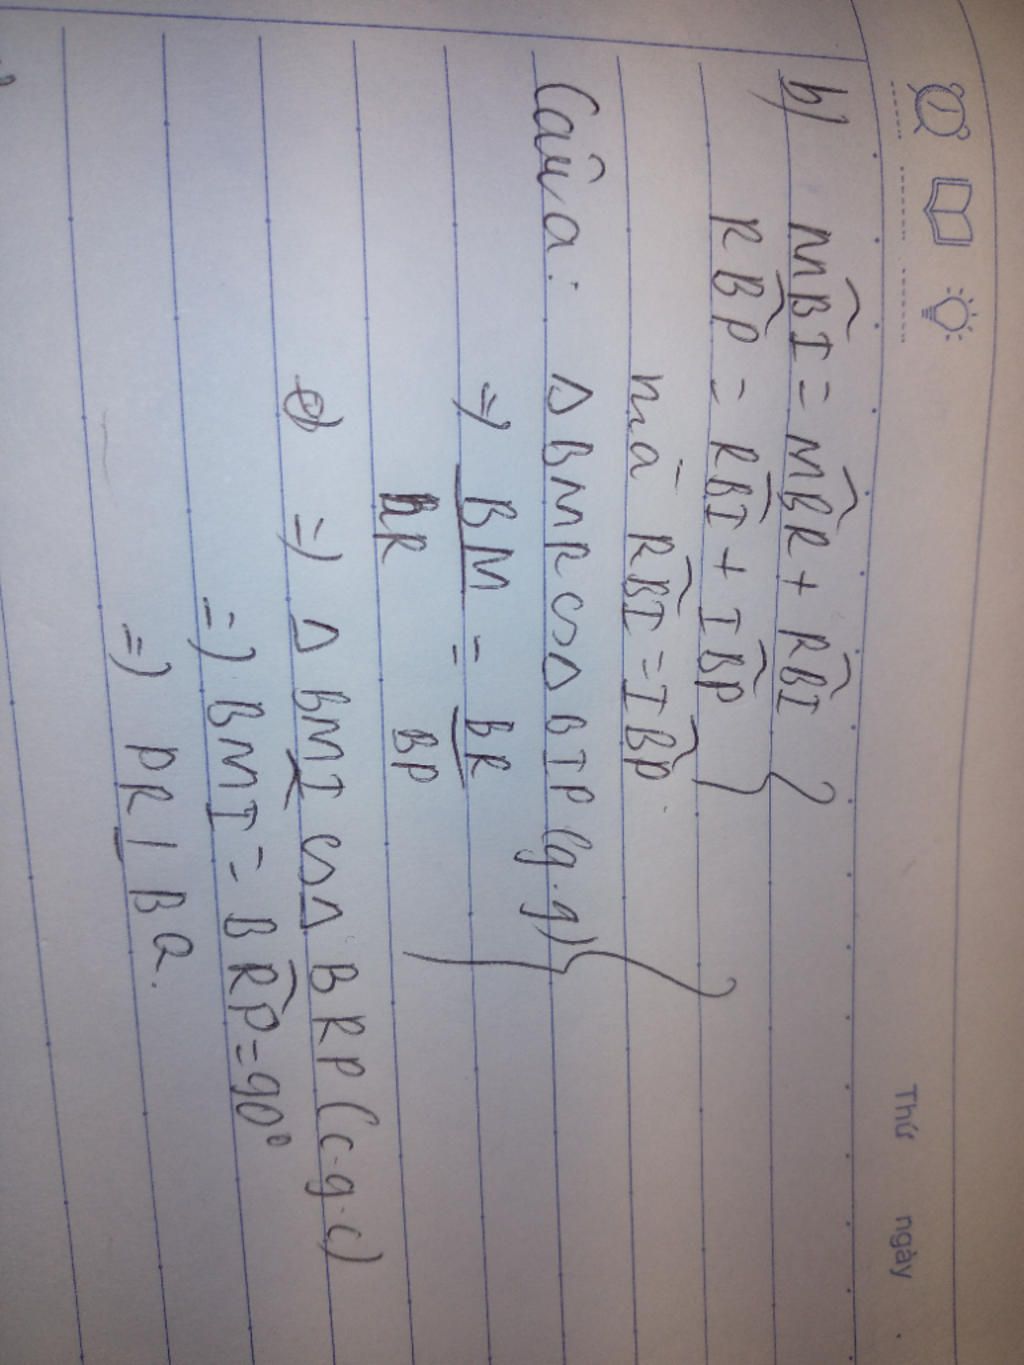 Thứ ngày
b) MBI = MBR + RBI
RBP = RBI + IBP
mà RBI = IBP
Câu a: Δ BMR ∽ Δ BIP (g.g)
=> BM = BR
BR BP
=> Δ BMI ∽ Δ BRP (c.g.c)
=> BMI = BRP = 90°
=> PR ⊥ BQ.